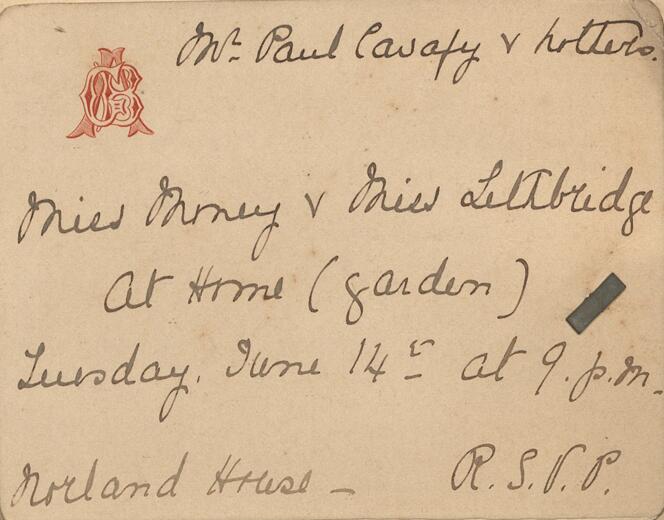 Mr. Paul Cavafy &
Miss Money & Miss Lethbridge
At Home (garden)
Tuesday, June 14th at 9. p.m.
Norland House – R.S.V.P.